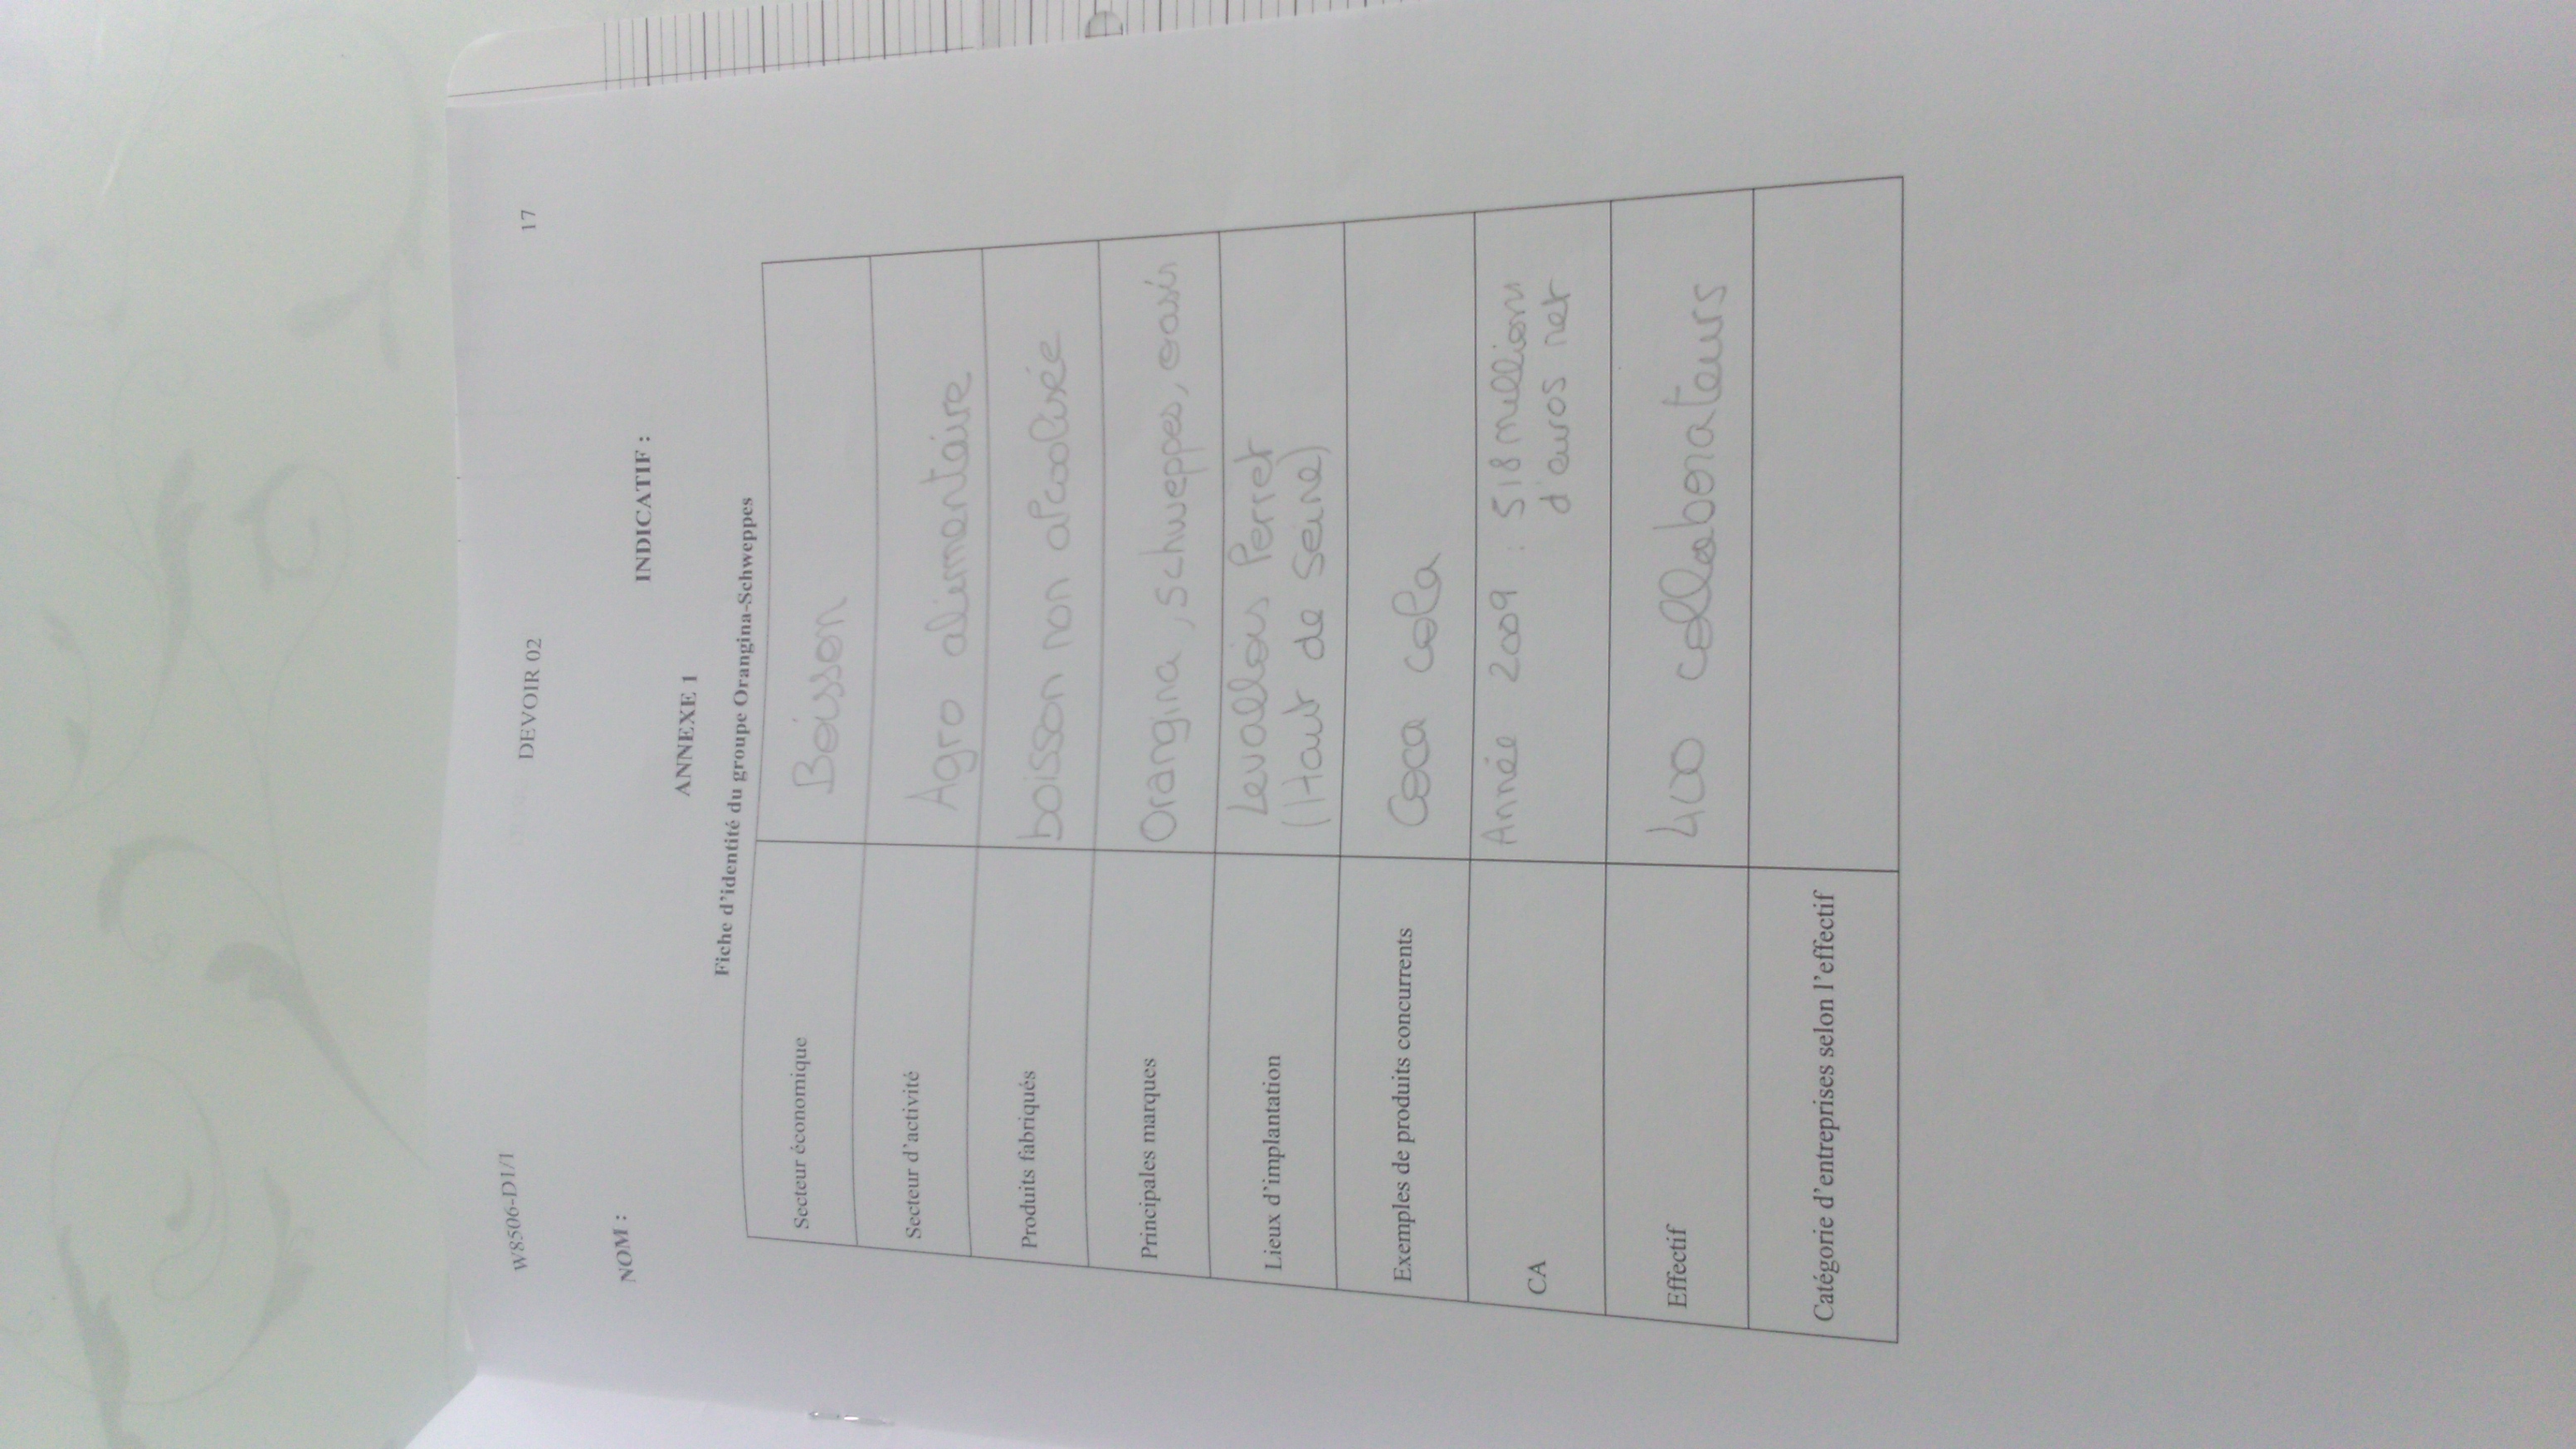 W8506-D1/1 DEVOIR 02 17
NOM : INDICATIF :
ANNEXE 1
Fiche d'identité du groupe Orangina-Schweppes
Secteur économique Boisson
Secteur d'activité Agro alimentaire
Produits fabriqués boisson non alcoolisée
Principales marques Orangina, schweppes, oasis
Lieux d'implantation Levallois Perret
(Haut de Seine)
Exemples de produits concurrents Coca cola
CA Année 2009 : 518 millions
d'euros net
Effectif 400 collaborateurs
Catégorie d'entreprises selon l'effectif